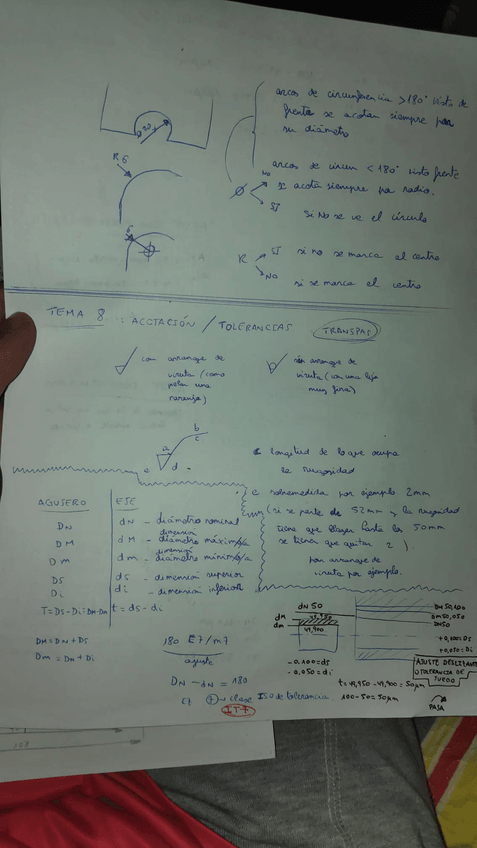 arcos de circunferencia > 180° visto de
frente se acotan siempre por
su diámetro
R 6
arcos de circun < 180° visto frente
se acota siempre por radio.
Ø
NO
SI
si No se ve el círculo
6
R
SI si no se marca el centro
NO si se marca el centro
TEMA 8 : ACOTACIÓN / TOLERANCIAS TRANSPAS
con arranque de
viruta (como
pelar una
naranja)
sin arranque de
viruta (con una lija
muy fina)
b
a c
e d
c longitud de lo que ocupa
la rugosidad
e sobremedida por ejemplo 2mm
(si se parte de 52mm y la rugosidad
tiene que llegar hasta los 50mm
se tienen que quitar 2).
por arranque de
viruta por ejemplo.
AGUJERO EJE
DN dN - diámetro nominal
DM dM - dimensión máxima
Dm dm - dimensión mínima
DS ds - dimensión superior
Di di - dimensión inferior
T = DS - Di = DM - Dm t = ds - di
DM = DN + DS
Dm = DN + Di
180 E7/m7
ajuste
DN - dN = 180
E7 7 → clase ISO de tolerancia
IT7
dN 50
dM
dm
49,950
49,900
-0,100 = ds
-0,050 = di
DM 50,100
Dm 50,050
DN 50
+0,100 = DS
+0,050 = Di
AJUSTE DESLIZANTE
O TOLERANCIA DE
JUEGO
t = 49,950 - 49,900 = 50µm
100 - 50 = 50µm
PASA